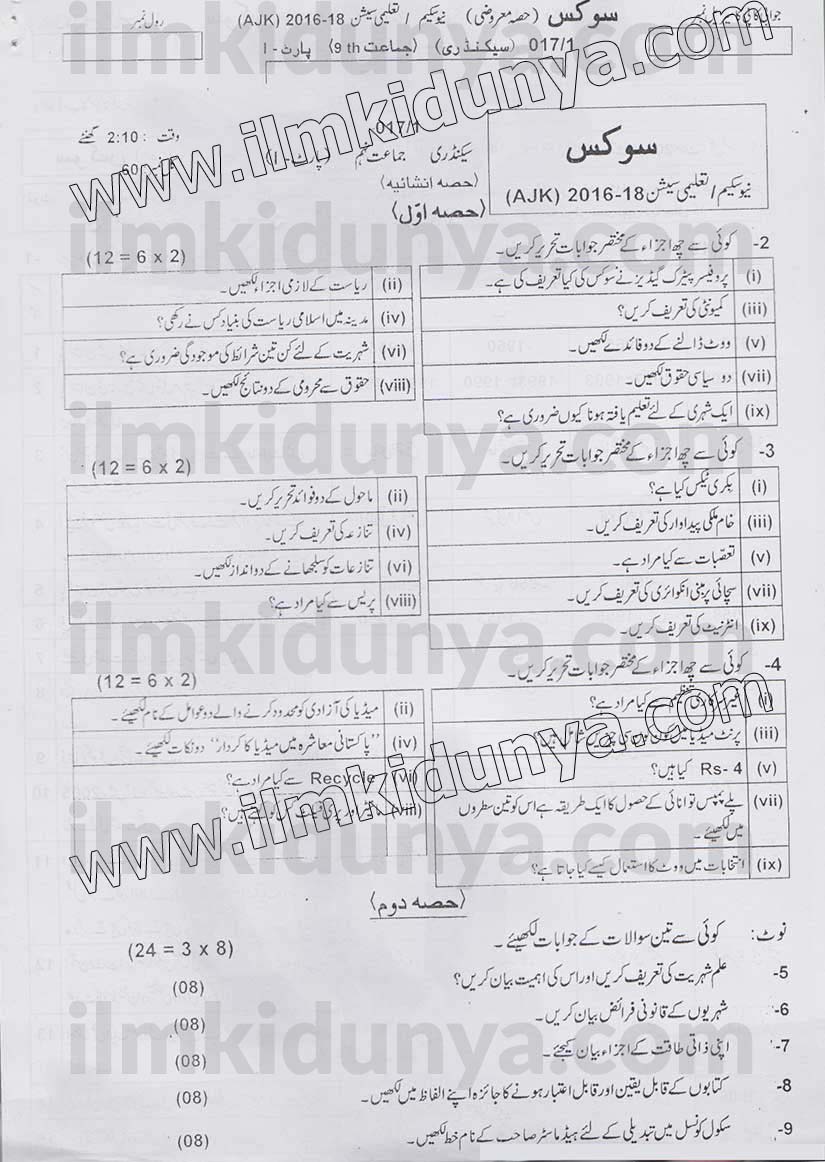 رول نمبر
سوکس (حصہ معروضی) نیو سکیم / تعلیمی سیشن 18-2016 (AJK)
017/1 (سیکنڈری) (جماعت 9th) پارٹ - I
سوکس
نیو سکیم / تعلیمی سیشن 18-2016 (AJK)
017/1
سیکنڈری جماعت نہم (پارٹ - I)
وقت : 2:10 گھنٹے
60
(حصہ انشائیہ)
(حصہ اوّل)
2- کوئی سے چھ اجزاء کے مختصر جوابات تحریر کریں۔ (12 = 6 x 2)
(i) پروفیسر پیٹرک گیڈیز نے سوکس کی کیا تعریف کی ہے۔
(ii) ریاست کے لازمی اجزاء لکھیں۔
(iii) کمیونٹی کی تعریف کریں؟
(iv) مدینہ میں اسلامی ریاست کی بنیاد کس نے رکھی؟
(v) ووٹ ڈالنے کے دو فائدے لکھیں۔
(vi) شہریت کے لئے کن تین شرائط کی موجودگی ضروری ہے؟
(vii) دو سیاسی حقوق لکھیں۔
(viii) حقوق سے محرومی کے دو نتائج لکھیں۔
(ix) ایک شہری کے لئے تعلیم یافتہ ہونا کیوں ضروری ہے؟
3- کوئی سے چھ اجزاء کے مختصر جوابات تحریر کریں۔ (12 = 6 x 2)
(i) بکری ٹیکس کیا ہے؟
(ii) ماحول کے دو فوائد تحریر کریں۔
(iii) خام ملکی پیداوار کی تعریف کریں۔
(iv) تنازعہ کی تعریف کریں۔
(v) تعصبات سے کیا مراد ہے۔
(vi) تنازعات کو سلجھانے کے دو انداز لکھیں۔
(vii) سچائی پر مبنی انکوائری کی تعریف کریں۔
(viii) پریس سے کیا مراد ہے؟
(ix) انٹرنیٹ کی تعریف کریں۔
4- کوئی سے چھ اجزاء کے مختصر جوابات تحریر کریں۔ (12 = 6 x 2)
(i) غیر سرکاری تنظیم سے کیا مراد ہے؟
(ii) میڈیا کی آزادی کو محدود کرنے والے دو عوامل کے نام لکھیئے۔
(iii) پرنٹ میڈیا میں کون کون سی چیزیں شامل ہیں؟
(iv) "پاکستانی معاشرہ میں میڈیا کا کردار" دو نکات لکھیئے۔
(v) Rs- 4 کیا ہیں؟
(vi) Recycle سے کیا مراد ہے؟
(vii) پلے پمپس توانائی کے حصول کا ایک طریقہ ہے اس کو تین سطروں
میں لکھیئے۔
(viii)
(ix) انتخابات میں ووٹ کا استعمال کیسے کیا جاتا ہے؟
(حصہ دوم)
نوٹ: کوئی سے تین سوالات کے جوابات لکھیئے۔ (24 = 3 x 8)
5- علم شہریت کی تعریف کریں اور اس کی اہمیت بیان کریں؟ (08)
6- شہریوں کے قانونی فرائض بیان کریں۔ (08)
7- اپنی ذاتی طاقت کے اجزاء بیان کیجئے۔ (08)
8- کتابوں کے قابل یقین اور قابل اعتبار ہونے کا جائزہ اپنے الفاظ میں لکھیں۔ (08)
9- سکول کونسل میں تبدیلی کے لئے ہیڈ ماسٹر صاحب کے نام خط لکھیں۔ (08)
www.ilmkidunya.com
www.ilmkidunya.com
ilmkidunya.com
ilmkidunya.com
ilmkidunya.com
ilmkidunya.com
ilmkidunya.com
ilmkidunya.com